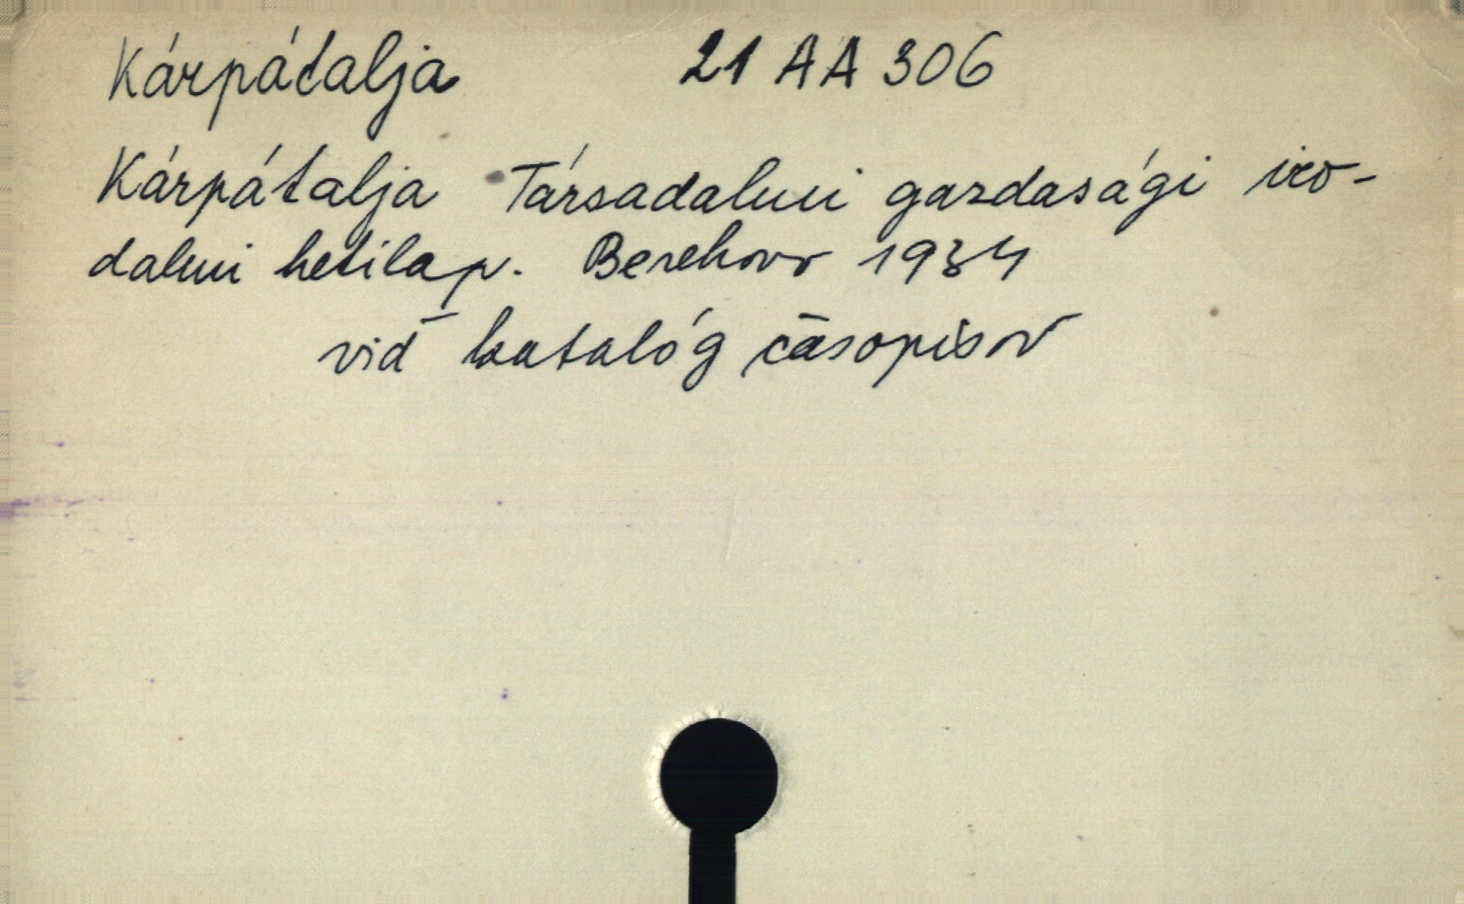 Kárpátalja 21 AA 306
Kárpátalja Társadalmi gazdasági iro-
dalmi hetilap. Berehovo 1934
viď katalóg časopisov